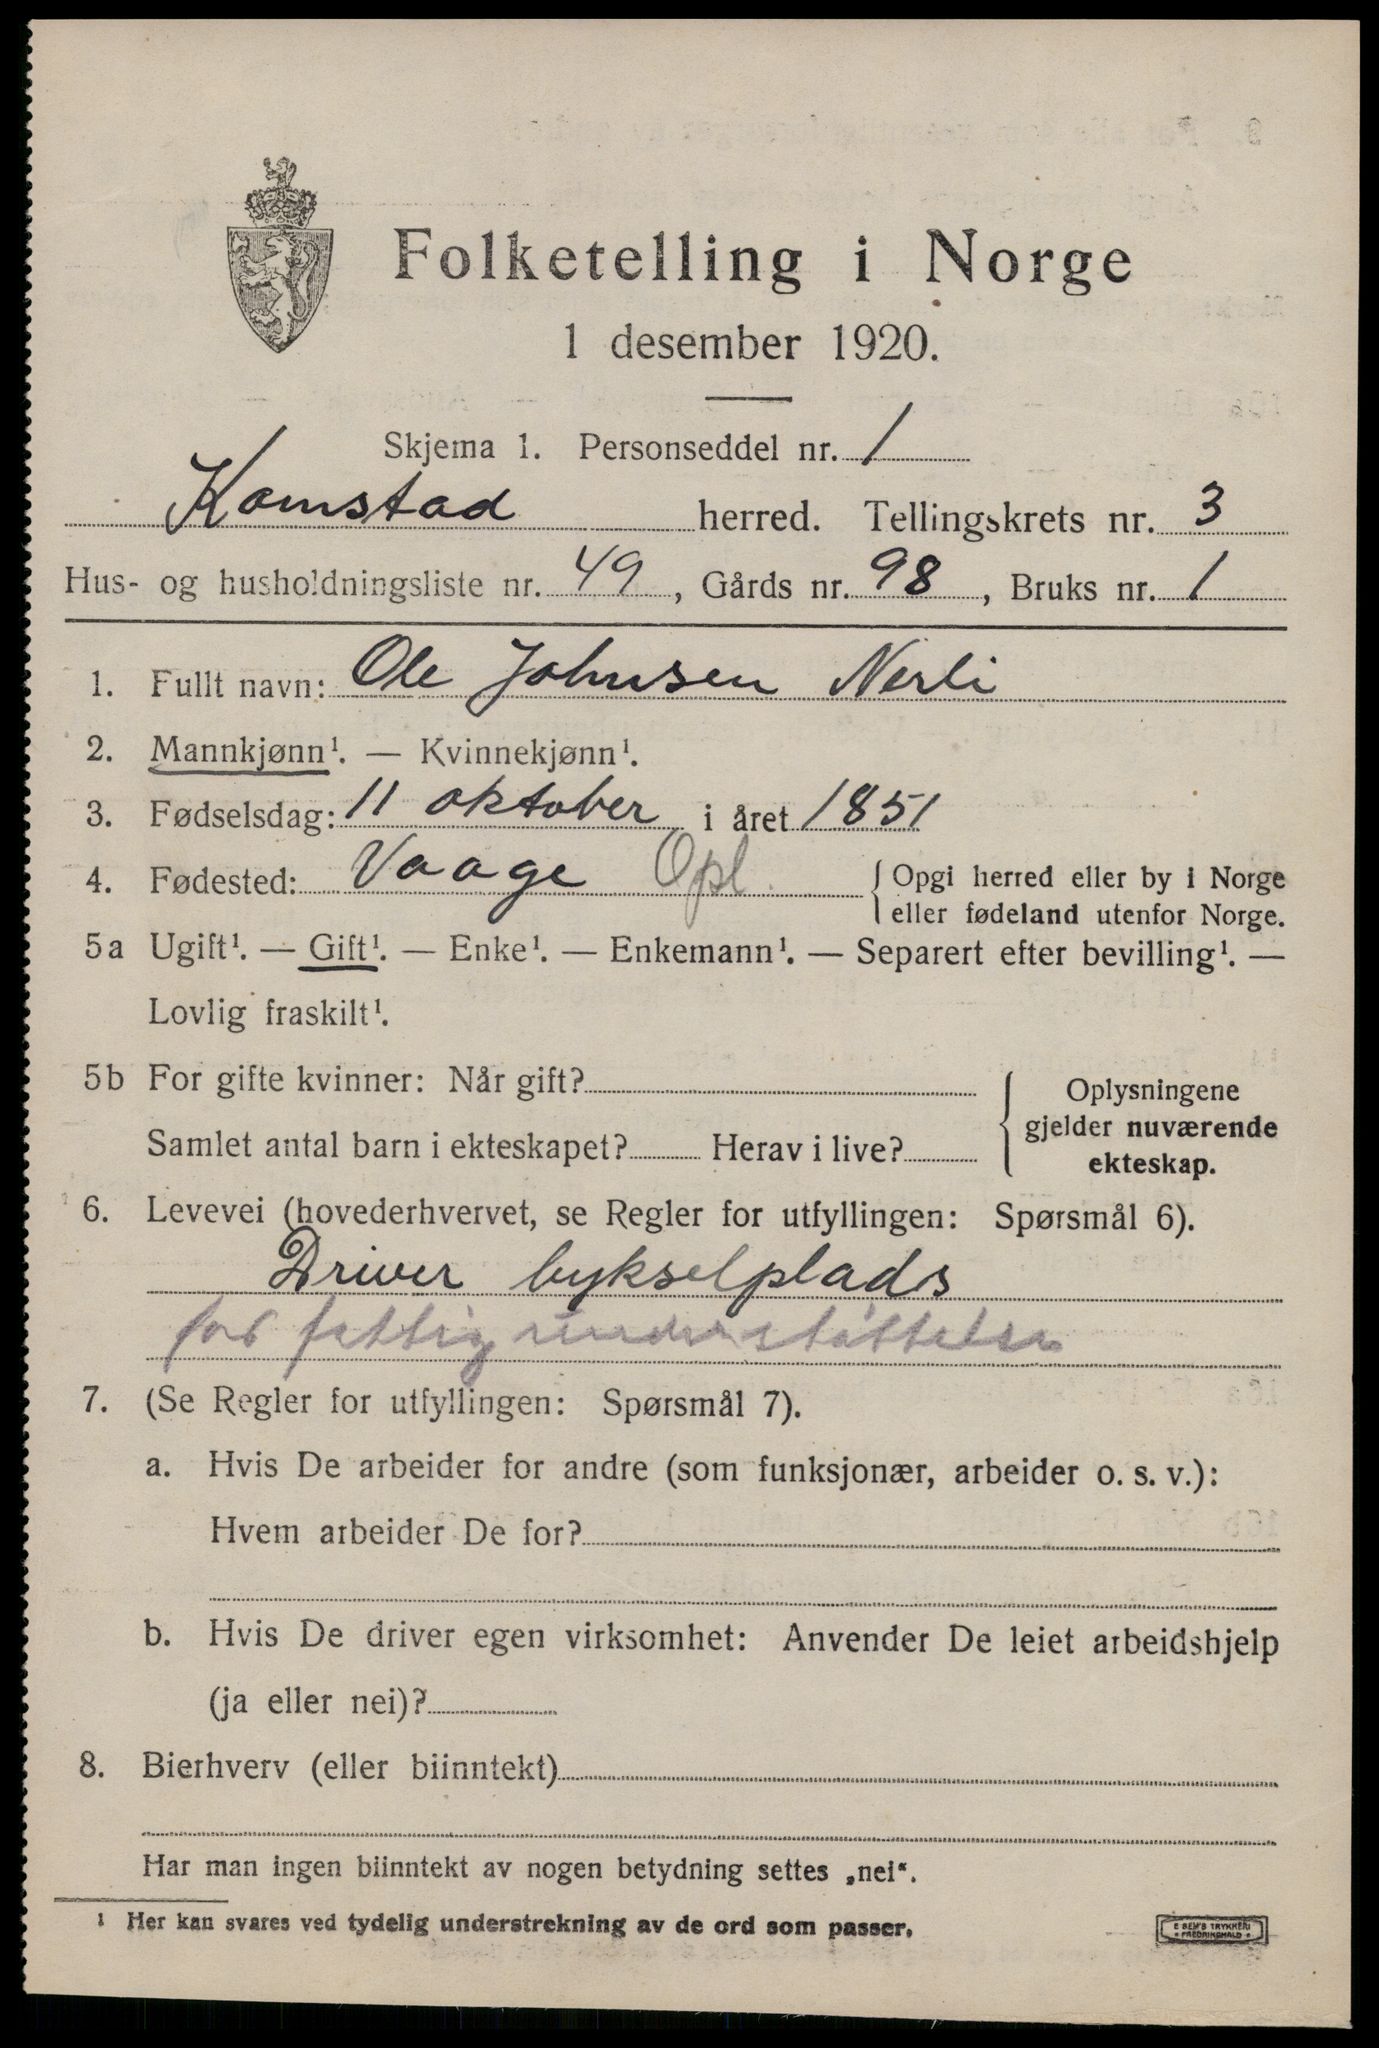 Folketelling i Norge
1 desember 1920.
Skjema 1. Personseddel nr. 1
Kornstad herred. Tellingskrets nr. 3
Hus- og husholdningsliste nr. 49, Gårds nr. 98, Bruks nr. 1
1. Fullt navn: Ole Johnsen Nerli
2. Mannkjønn¹. — Kvinnekjønn¹.
3. Fødselsdag: 11 oktober i året 1851
4. Fødested: Vaage Opl. { Opgi herred eller by i Norge
eller fødeland utenfor Norge.
5a Ugift¹. — Gift¹. — Enke¹. — Enkemann¹. — Separert efter bevilling¹. —
Lovlig fraskilt¹.
5b For gifte kvinner: Når gift?
Samlet antal barn i ekteskapet? Herav i live?
{ Oplysningene
gjelder nuværende
ekteskap.
6. Levevei (hovederhvervet, se Regler for utfyllingen: Spørsmål 6).
Driver bykselplads
før fattig understøttelse
7. (Se Regler for utfyllingen: Spørsmål 7).
a. Hvis De arbeider for andre (som funksjonær, arbeider o. s. v.):
Hvem arbeider De for?
b. Hvis De driver egen virksomhet: Anvender De leiet arbeidshjelp
(ja eller nei)?
8. Bierhverv (eller biinntekt)
Har man ingen biinntekt av nogen betydning settes „nei“.
¹ Her kan svares ved tydelig understrekning av de ord som passer.
E SEM'S TRYKKERI
FREDRIKSHALD